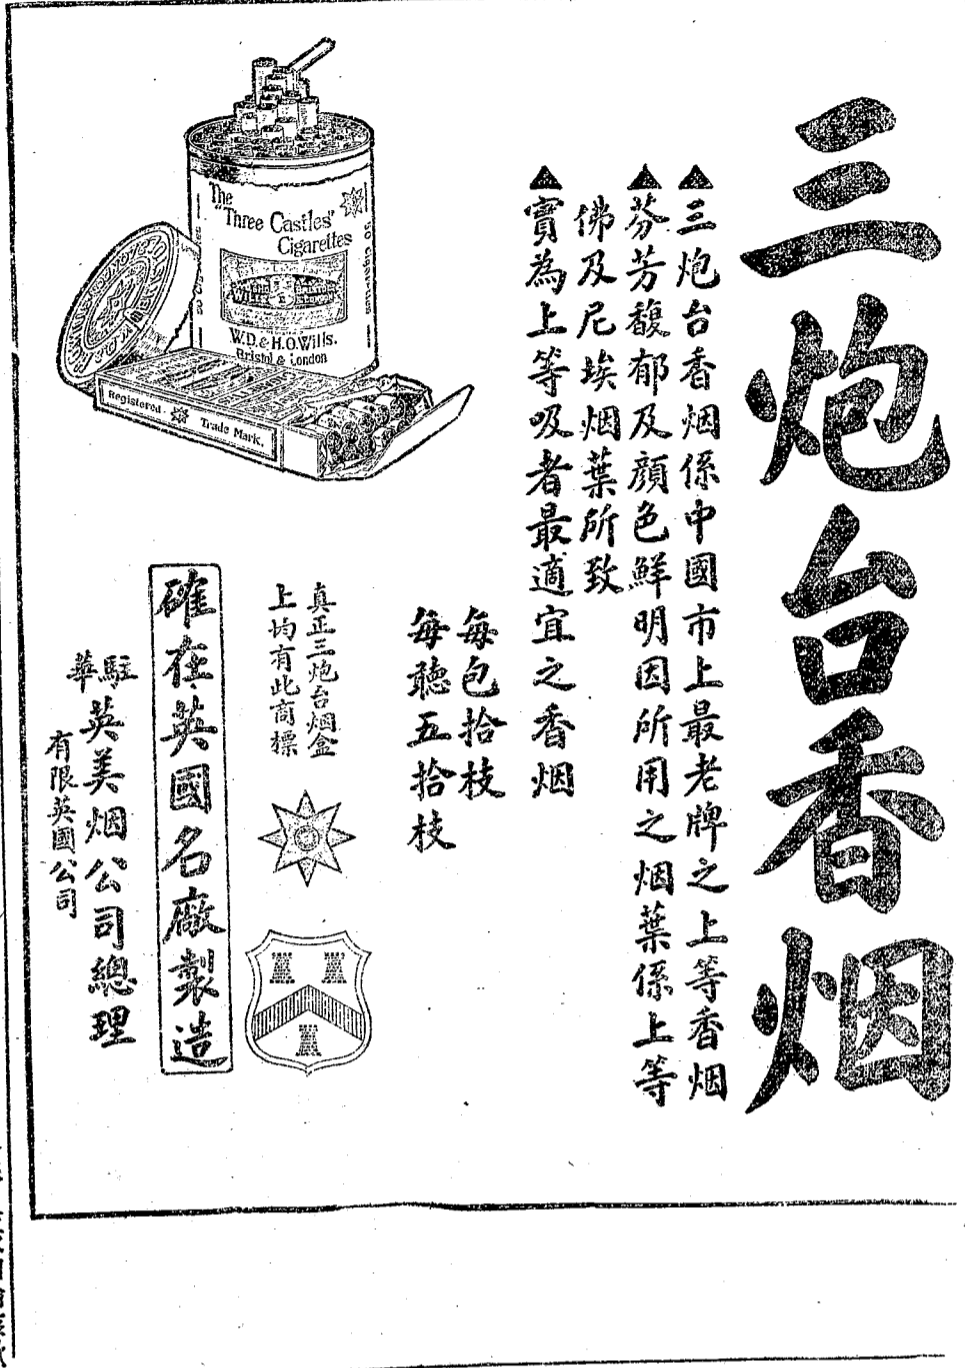 三炮台香烟
▲三炮台香烟係中國市上最老牌之上等香烟
▲芬芳馥郁及顏色鮮明因所用之烟葉係上等
佛及尼埃烟葉所致
▲實為上等吸者最適宜之香烟
每包拾枝
每聽五拾枝
The
"Three Castles"
Cigarettes
W.D. & H.O. Wills.
Bristol & London
Registered Trade Mark.
真正三炮台烟盒
上均有此商標
確在英國名廠製造
駐華英美烟公司總理
有限英國公司